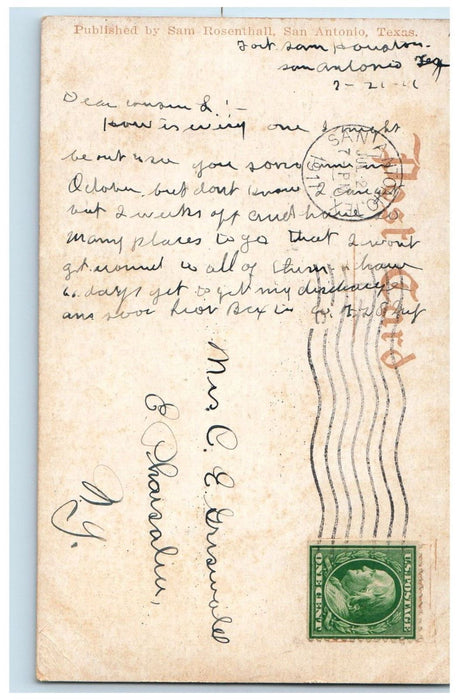 Published by Sam Rosenthall, San Antonio, Texas.
Fort Sam Houston
San Antonio Tex
7-21-11
Dear cousin E :-
How is every one I might
be out see you some time in
October but dont know I can get
but 2 weeks off and have so
many places to go that I wont
get around to all of them I have
days yet to get my discharge
ans soon
Post Card
SAN ANTONIO, TEX.
JUL 21
7 PM
1911
Mrs C. E Griswold
E Pharsalia,
N.Y.
U.S. POSTAGE
ONE CENT